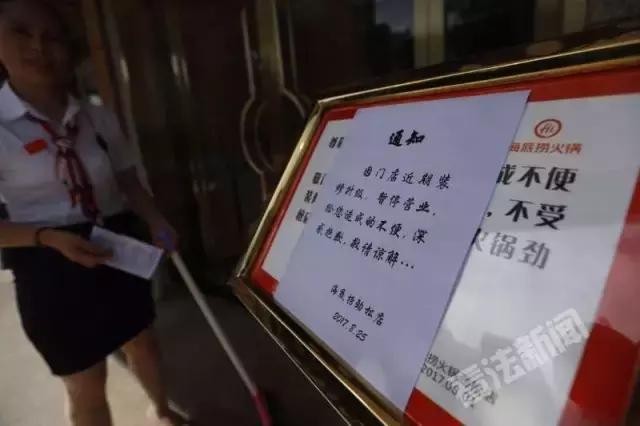 海底捞火锅
通知
因门店近期装
修升级，暂停营业，
给您造成的不便，深
表抱歉，敬请谅解...
海底捞劲松店
2017.8.25
成不便
，不受
火锅劲
捞火锅
2017.08
店
法制新闻